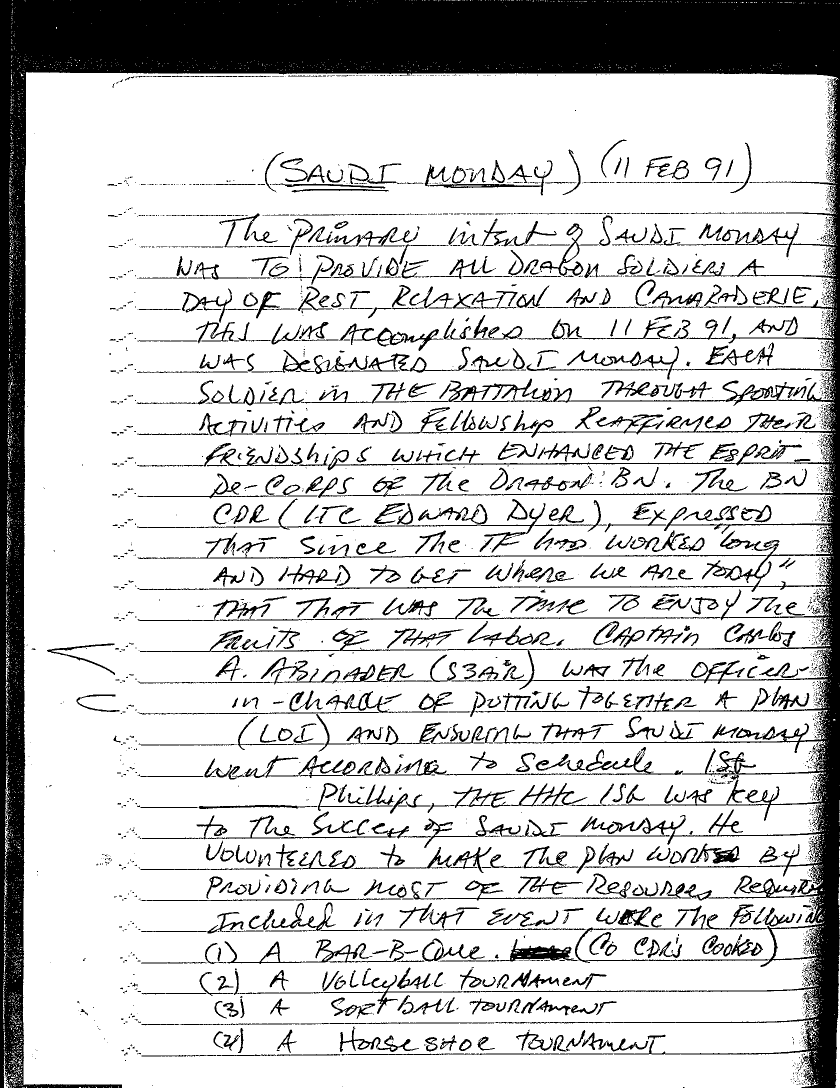 (SAUDI MONDAY) (11 FEB 91)
The PRIMARY intent of SAUDI MONDAY
WAS TO PROVIDE ALL DRAGON SOLDIERS A
DAY OF REST, RELAXATION AND CAMARADERIE.
THIS WAS ACCOMPLISHED ON 11 FEB 91, AND
WAS DESIGNATED SAUDI MONDAY. EACH
SOLDIER in THE BATTALION THROUGH SPORTING
ACTIVITIES AND Fellowship REAFFIRMED THEIR
FRIENDSHIPS WHICH ENHANCED THE ESPRIT-
DE-CORPS OF THE DRAGON BN. The BN
CDR (LTC EDWARD DYER), EXPRESSED
THAT Since THE TF HAD WORKED "long
AND HARD TO GET WHERE WE ARE TODAY",
THAT THAT WAS THE TIME TO ENJOY THE
FRUITS OF THAT LABOR. CAPTAIN CARLOS
A. ABINADER (S3AIR) WAS THE OFFICER-
in-CHARGE OF PUTTING TOGETHER A PLAN
(LOI) AND ENSURING THAT SAUDI MONDAY
Went ACCORDING to Schedule. 1SG
________ Phillips, THE HHC 1SG WAS key
to THE SUCCESS OF SAUDI MONDAY. He
VOLUNTEERED to MAKE THE PLAN WORK BY
PROVIDING MOST OF THE RESOURCES
Included in THAT EVENT WERE THE Following
(1) A BAR-B-QUE. (CO CDR'S COOKED)
(2) A VOLLEYBALL TOURNAMENT
(3) A SOFTBALL TOURNAMENT
(4) A HORSE SHOE TOURNAMENT.